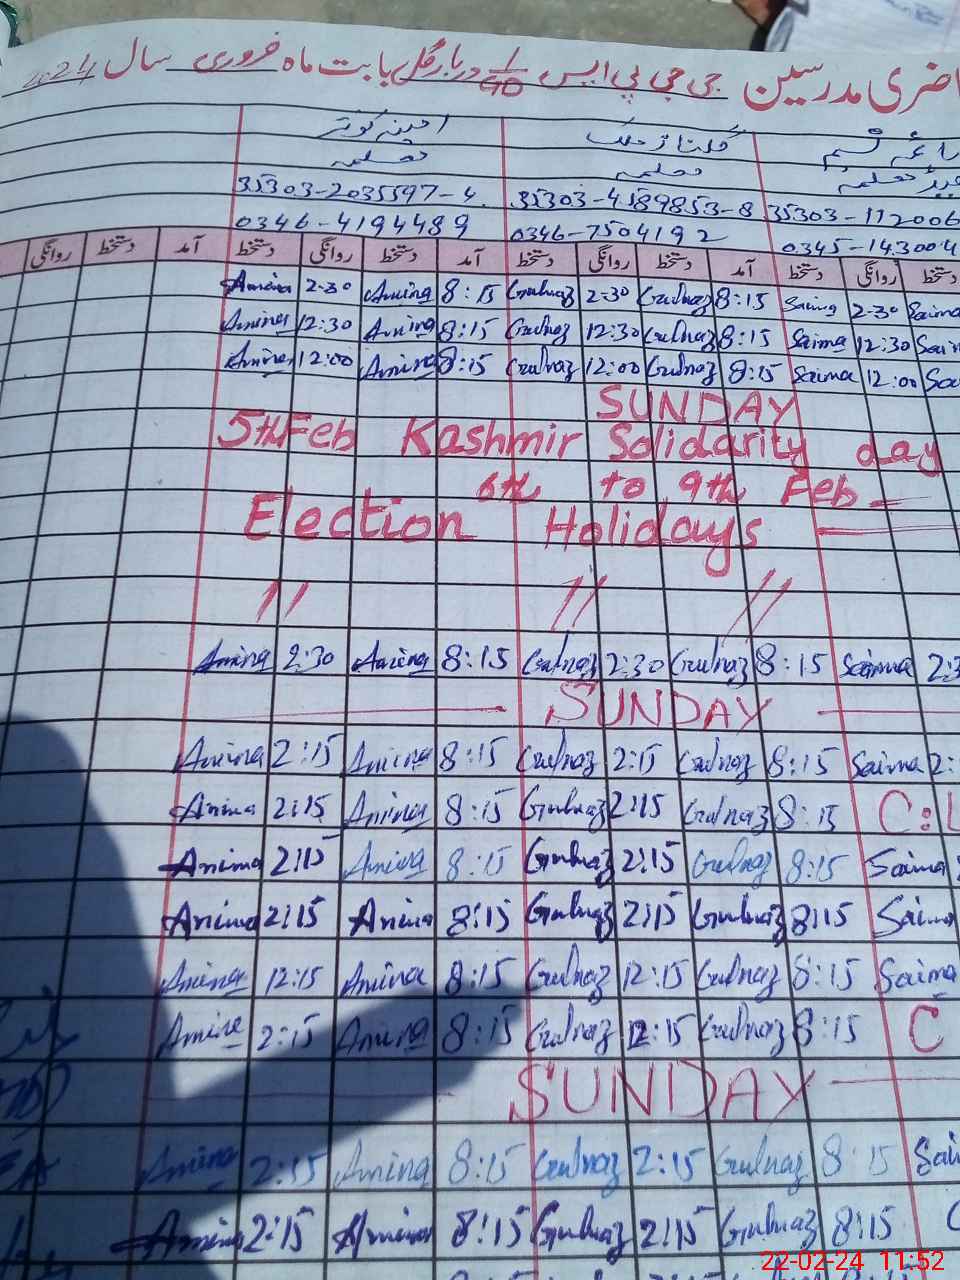 حاضری مدرسین جی جی پی ایس 1/GD دربار گل بابت ماہ فروری سال 2024
گلناز ملک امینہ کوثر
معلمہ معلمہ
35303-4589853-8 35303-2035597-4
0345-14300 0346-7504192 0346-4194489
دستخط روانگی دستخط آمد دستخط روانگی دستخط آمد دستخط روانگی دستخط آمد دستخط روانگی
Amina 2-30 Amina 8:15 Gulnaz 2-30 Gulnaz 8:15 Saima 2-30 Saima
Amina 12:30 Amina 8:15 Gulnaz 12:30 Gulnaz 8:15 Saima 12:30 Sai
Amina 12:00 Amina 8:15 Gulnaz 12:00 Gulnaz 8:15 Saima 12:00 Sa
SUNDAY
5th Feb Kashmir Solidarity day
6th to 9th Feb
Election Holidays
〃 〃 〃
Amina 2:30 Amina 8:15 Gulnaz 2:30 Gulnaz 8:15 Saima 2:3
SUNDAY
Amina 2:15 Amina 8:15 Gulnaz 2:15 Gulnaz 8:15 Saima 2:
Amina 2:15 Amina 8:15 Gulnaz 2:15 Gulnaz 8:15 C:L
Amina 2:15 Amina 8:15 Gulnaz 2:15 Gulnaz 8:15 Saima
Amina 2:15 Amina 8:15 Gulnaz 2:15 Gulnaz 8:15 Saima
Amina 12:15 Amina 8:15 Gulnaz 12:15 Gulnaz 8:15 Saima
Amina 2:15 Amina 8:15 Gulnaz 12:15 Gulnaz 8:15 C
SUNDAY
Amina 2:15 Amina 8:15 Gulnaz 2:15 Gulnaz 8:15 Sai
Amina 2:15 Amina 8:15 Gulnaz 2:15 Gulnaz 8:15 C
22-02-24 11:52